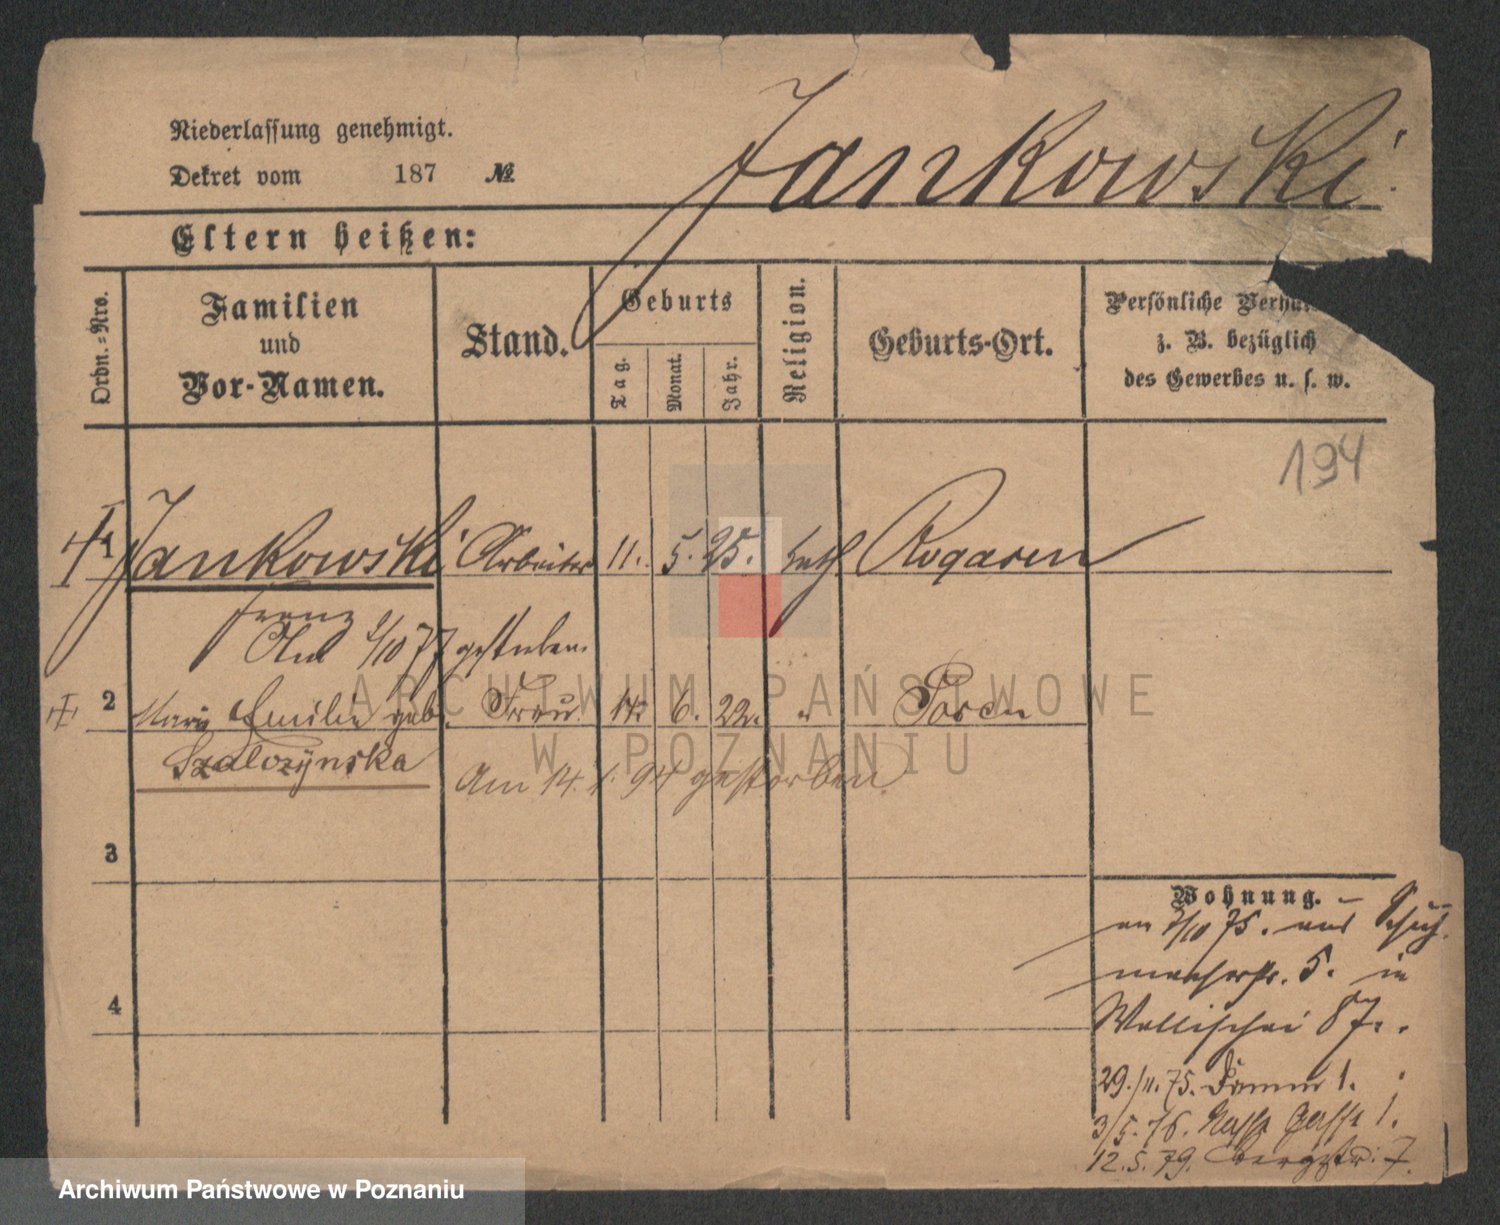 Jankowski.
Niederlassung genehmigt.
Dekret vom 187 №
Eltern heißen:
Ordn.-Nro.
Familien
und
Vor-Namen.
Stand.
Geburts
Tag.
Monat.
Jahr.
Religion.
Geburts-Ort.
Persönliche
z. B. bezüglich
des Gewerbes u. s. w.
194
1 Jankowski Arbeiter 11. 5. 25. kath Rogasen
Franz
Am 2/10 77 gestorben.
2 Marie Emilie geb. Frau 14. 6. 22. " Posen
Szalczynska
Am 14. 1. 94 gestorben.
3
4
Wohnung.
an 2/10 75. aus Schuh-
macherstr. 5. in
Wallischei 87.
29./11. 75. Damm 1.
3/5. 76. Gasse 1.
12. 5. 79. Bergstr: 7.
ARCHIWUM PAŃSTWOWE
W POZNANIU
Archiwum Państwowe w Poznaniu